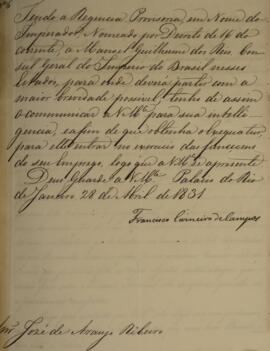 Tendo a Regencia Provisoria, em Nome do
Imperador Nomeado por Decreto de 16 do
corrente, a Manoel Guilherme dos Reis Con-
sul Geral do Imperio do Brasil nesses
Estados, para onde deverá partir com a
maior brevidade possivel, tenho de assim
o communicar a VMce para sua intelli-
gencia, e a fim de que obtenha o Exequatur,
para elle entrar no exercicio das funcções
do seu Emprego, logo que a VMce se apresente
Deus Guarde a VMce Palacio do Rio
de Janeiro 28 de Abril de 1831
Francisco Carneiro de Campos
Snr José de Araujo Ribeiro